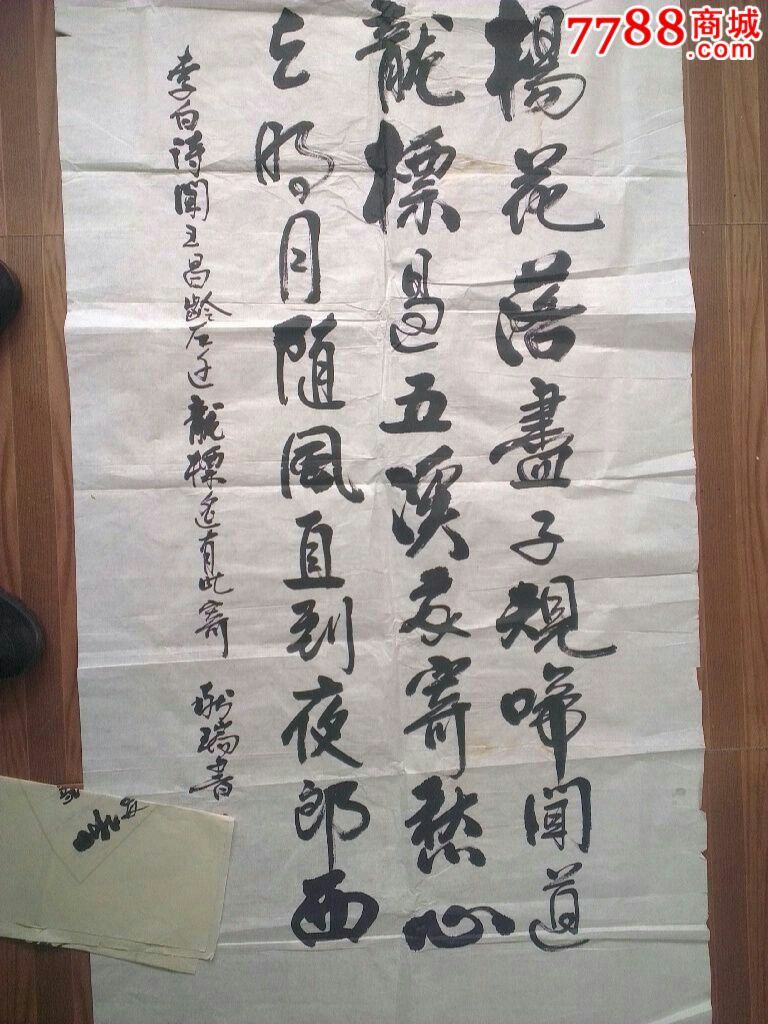 7788商城
.com
楊花落盡子規啼聞道
龍標過五溪我寄愁心
与明月随風直到夜郎西
李白诗闻王昌龄左迁龍標遥有此寄
瑞書